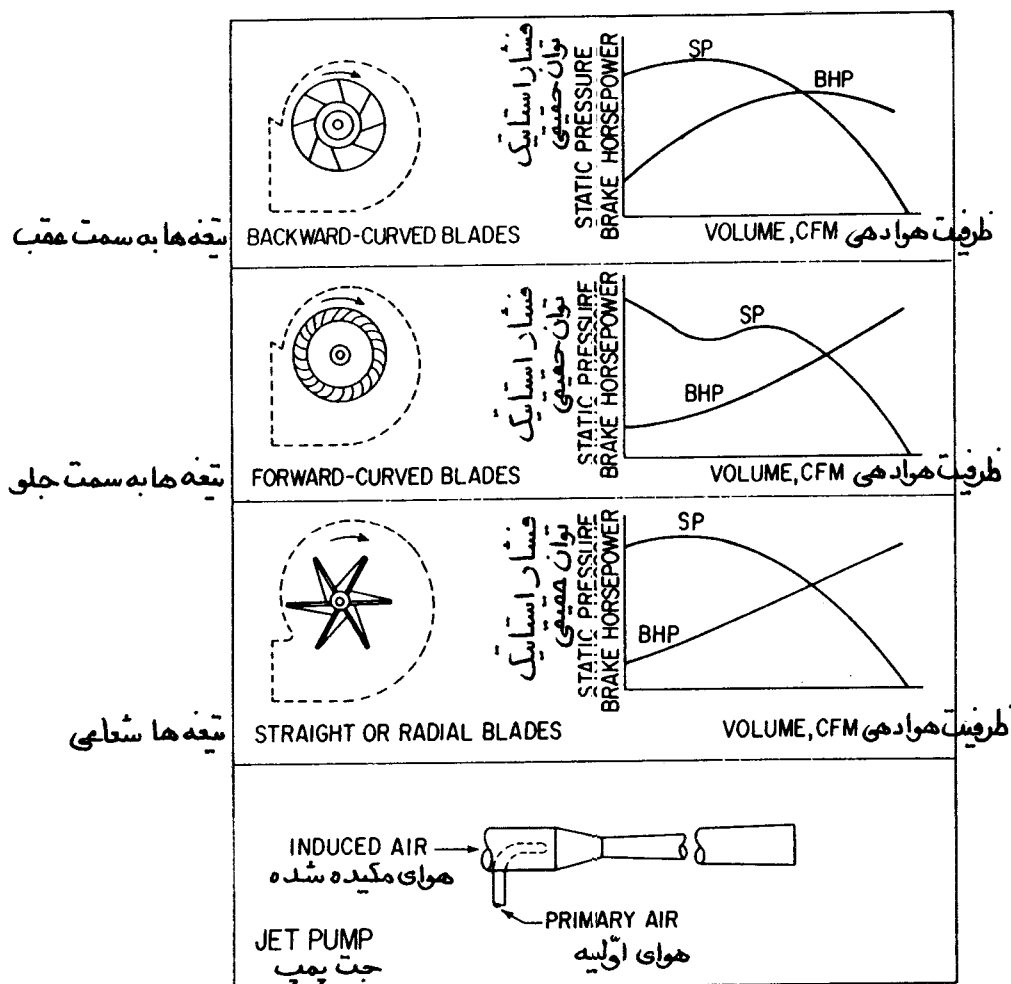 فشار استاتیک
توان حقیقی
STATIC PRESSURE
BRAKE HORSEPOWER
SP
BHP
تیغه ها به سمت عقب
BACKWARD-CURVED BLADES
VOLUME, CFM ظرفیت هوادهی
فشار استاتیک
توان حقیقی
STATIC PRESSURE
BRAKE HORSEPOWER
SP
BHP
تیغه ها به سمت جلو
FORWARD-CURVED BLADES
VOLUME, CFM ظرفیت هوادهی
فشار استاتیک
توان حقیقی
STATIC PRESSURE
BRAKE HORSEPOWER
SP
BHP
تیغه ها شعاعی
STRAIGHT OR RADIAL BLADES
VOLUME, CFM ظرفیت هوادهی
INDUCED AIR
هوای مکیده شده
PRIMARY AIR
هوای اوّلیه
JET PUMP
جت پمپ